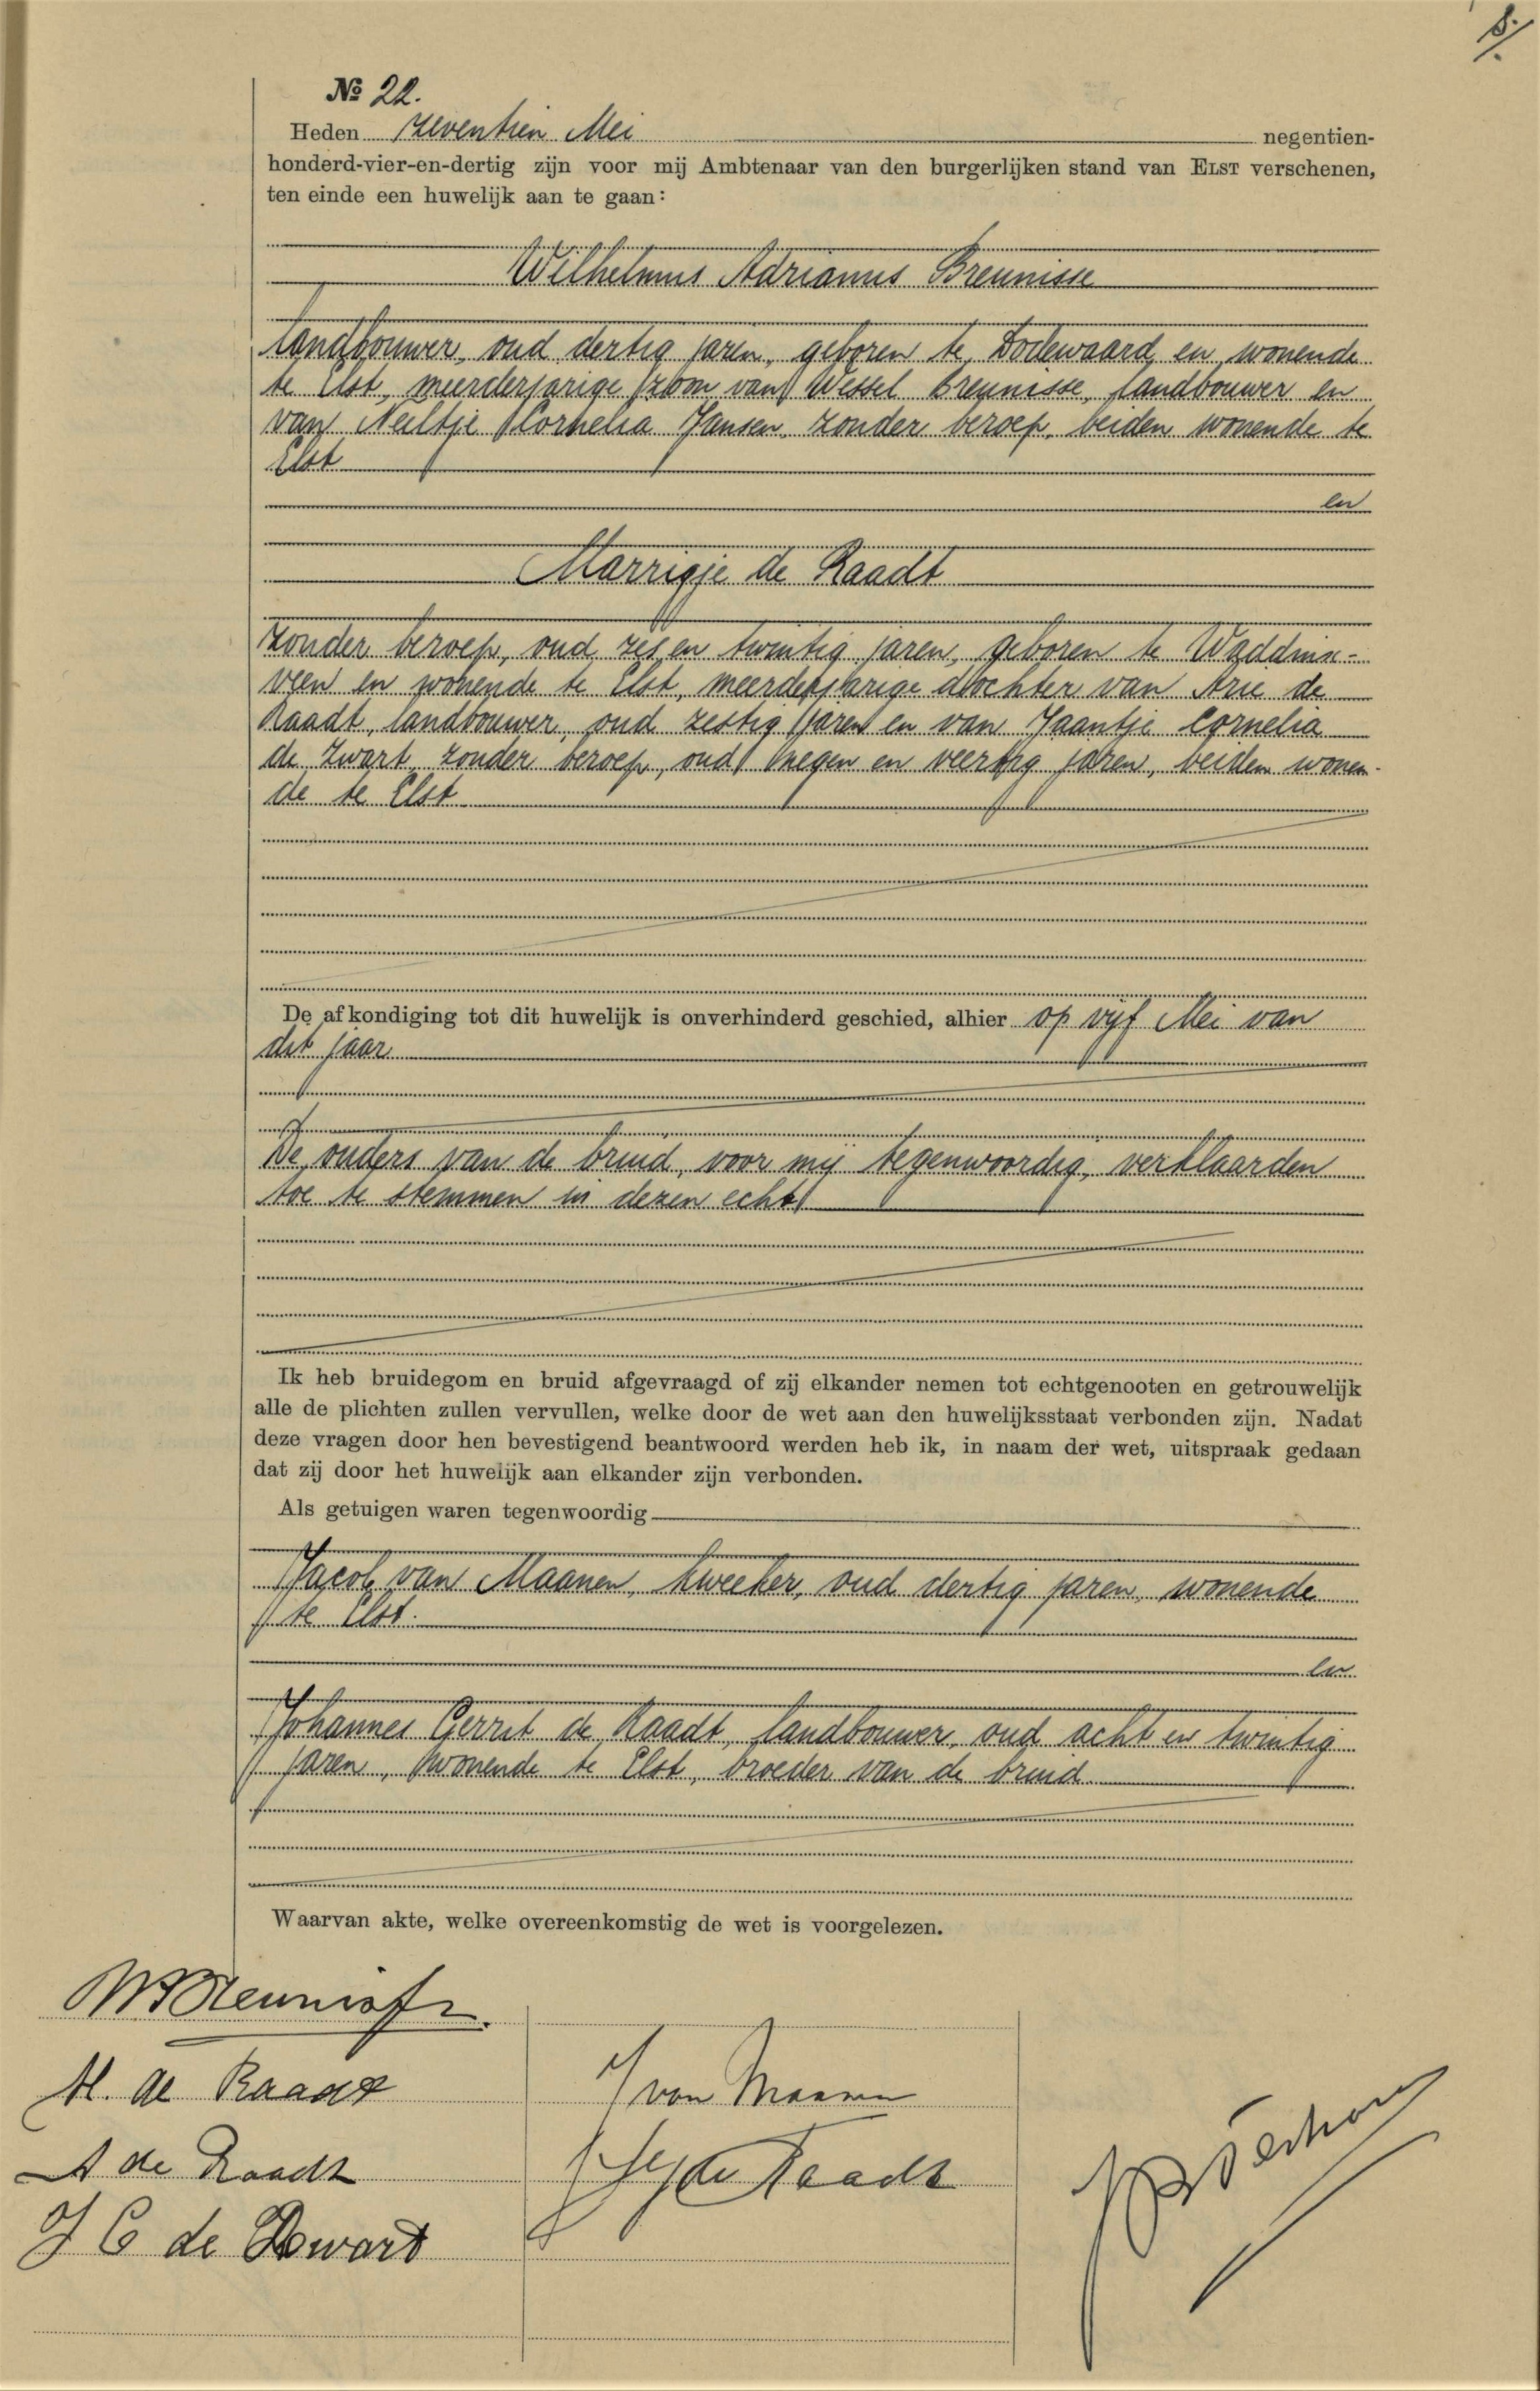 8.
№ 22.
Heden zeventien Mei negentien-
honderd-vier-en-dertig zijn voor mij Ambtenaar van den burgerlijken stand van ELST verschenen,
ten einde een huwelijk aan te gaan:
Wilhelmus Adrianus Breunisse
landbouwer, oud dertig jaren, geboren te Dodewaard en wonende
te Elst, meerderjarige zoon van Wessel Breunisse, landbouwer en
van Neeltje Cornelia Jansen, zonder beroep, beiden wonende te
Elst
en
Marrigje de Raadt
zonder beroep, oud zes en twintig jaren, geboren te Waddinx-
veen en wonende te Elst, meerderjarige dochter van Arie de
Raadt, landbouwer, oud zestig jaren en van Jaantje Cornelia
de Zwart, zonder beroep, oud negen en veertig jaren, beiden wonen-
de te Elst
De afkondiging tot dit huwelijk is onverhinderd geschied, alhier op vijf Mei van
dit jaar
De ouders van de bruid, voor mij tegenwoordig, verklaarden
toe te stemmen in dezen echt
Ik heb bruidegom en bruid afgevraagd of zij elkander nemen tot echtgenooten en getrouwelijk
alle de plichten zullen vervullen, welke door de wet aan den huwelijksstaat verbonden zijn. Nadat
deze vragen door hen bevestigend beantwoord werden heb ik, in naam der wet, uitspraak gedaan
dat zij door het huwelijk aan elkander zijn verbonden.
Als getuigen waren tegenwoordig
Jacob van Maanen, kweeker, oud dertig jaren, wonende
te Elst.
en
Johannes Gerrit de Raadt, landbouwer, oud acht en twintig
jaren, wonende te Elst, broeder van de bruid
Waarvan akte, welke overeenkomstig de wet is voorgelezen.
WABreunisse.
M. de Raadt
J van Maanen
A de Raadt
J G de Raadt
J C de Zwart